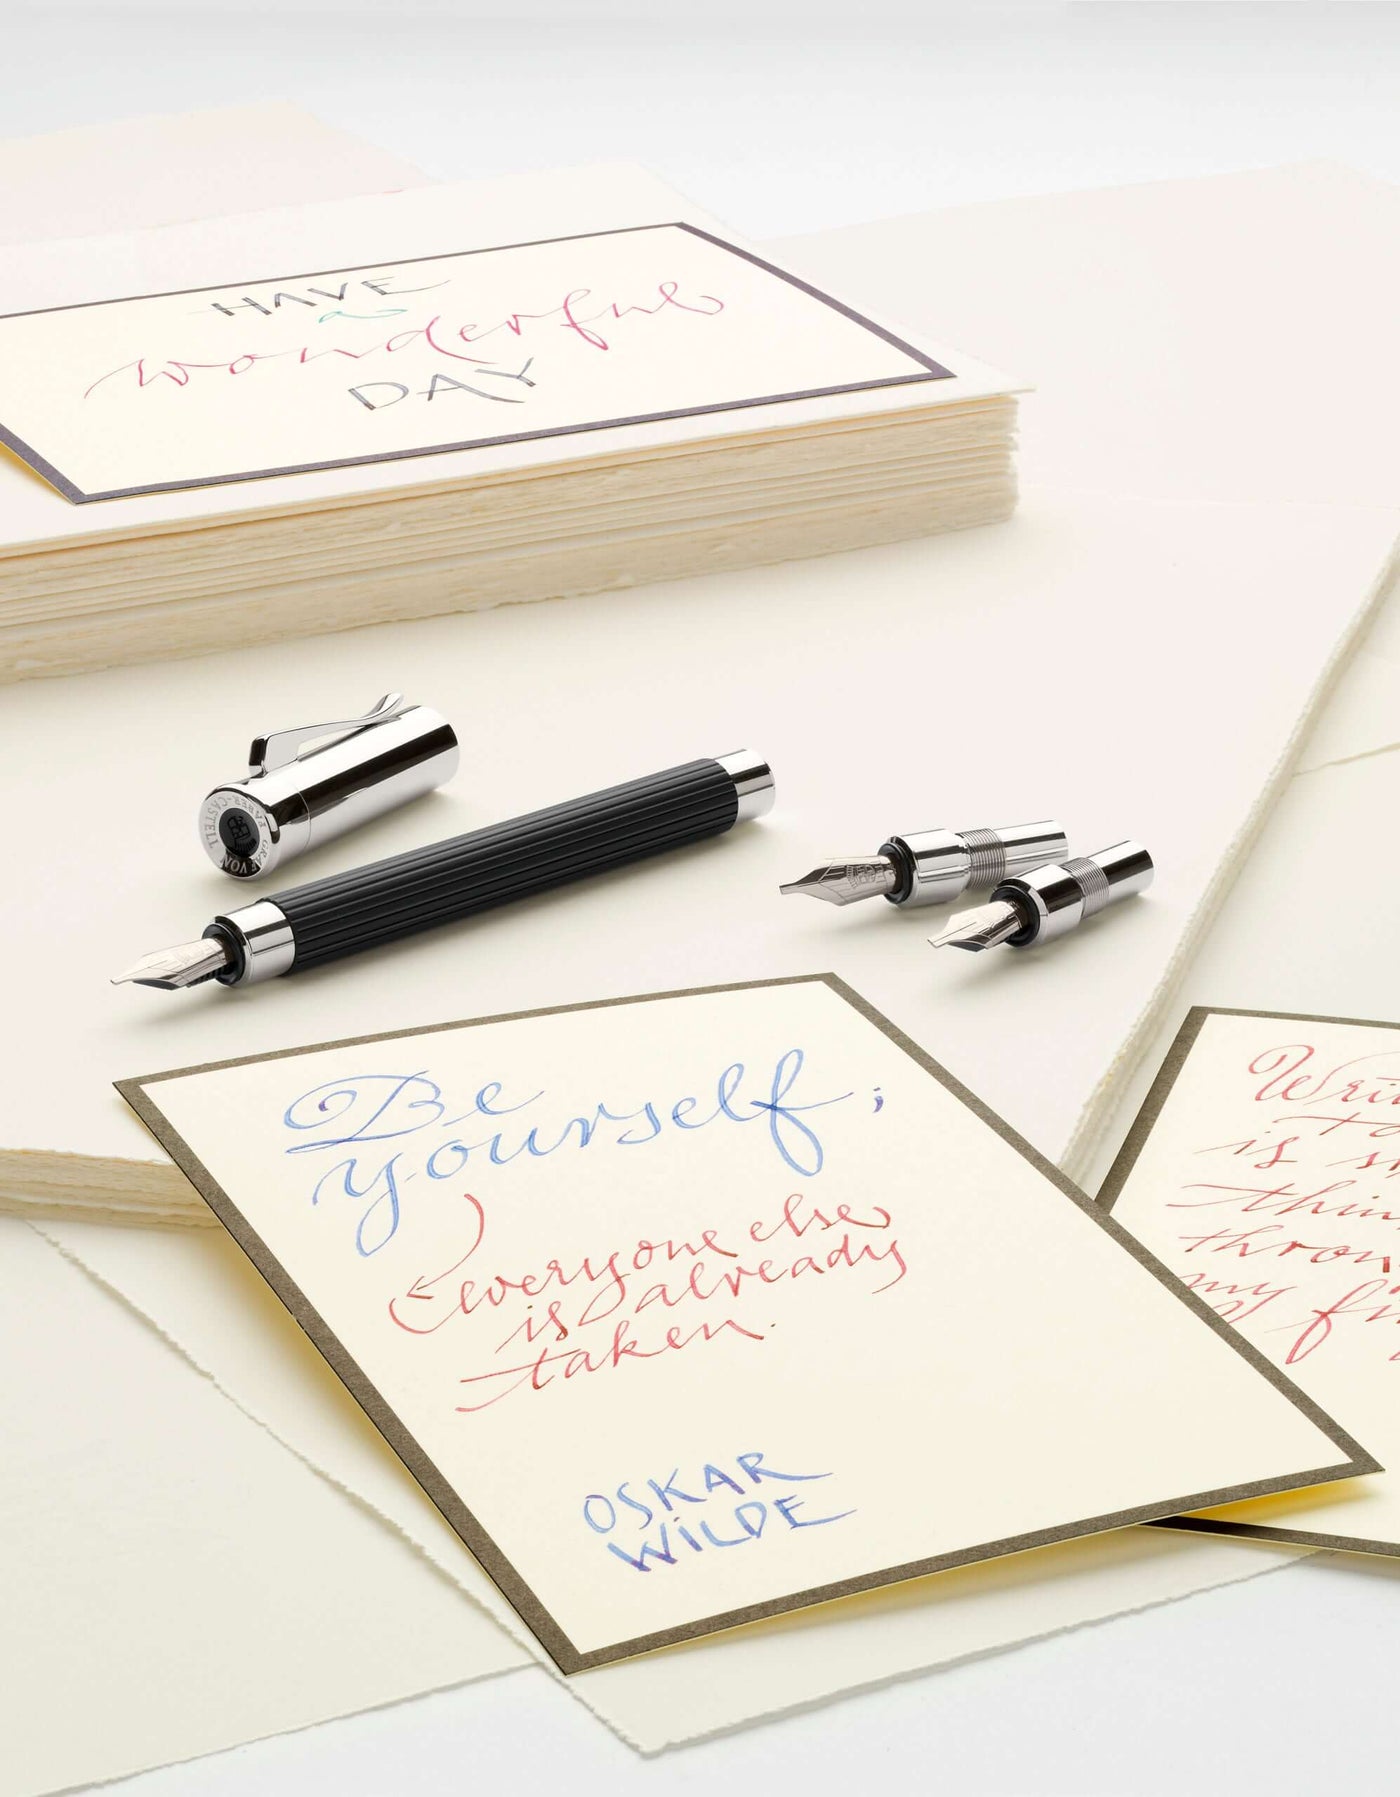 HAVE
a
wonderful
DAY
GRAF VON FABER-CASTELL
Be
yourself;
everyone else
is already
taken.
OSKAR
WILDE
is
thron
my